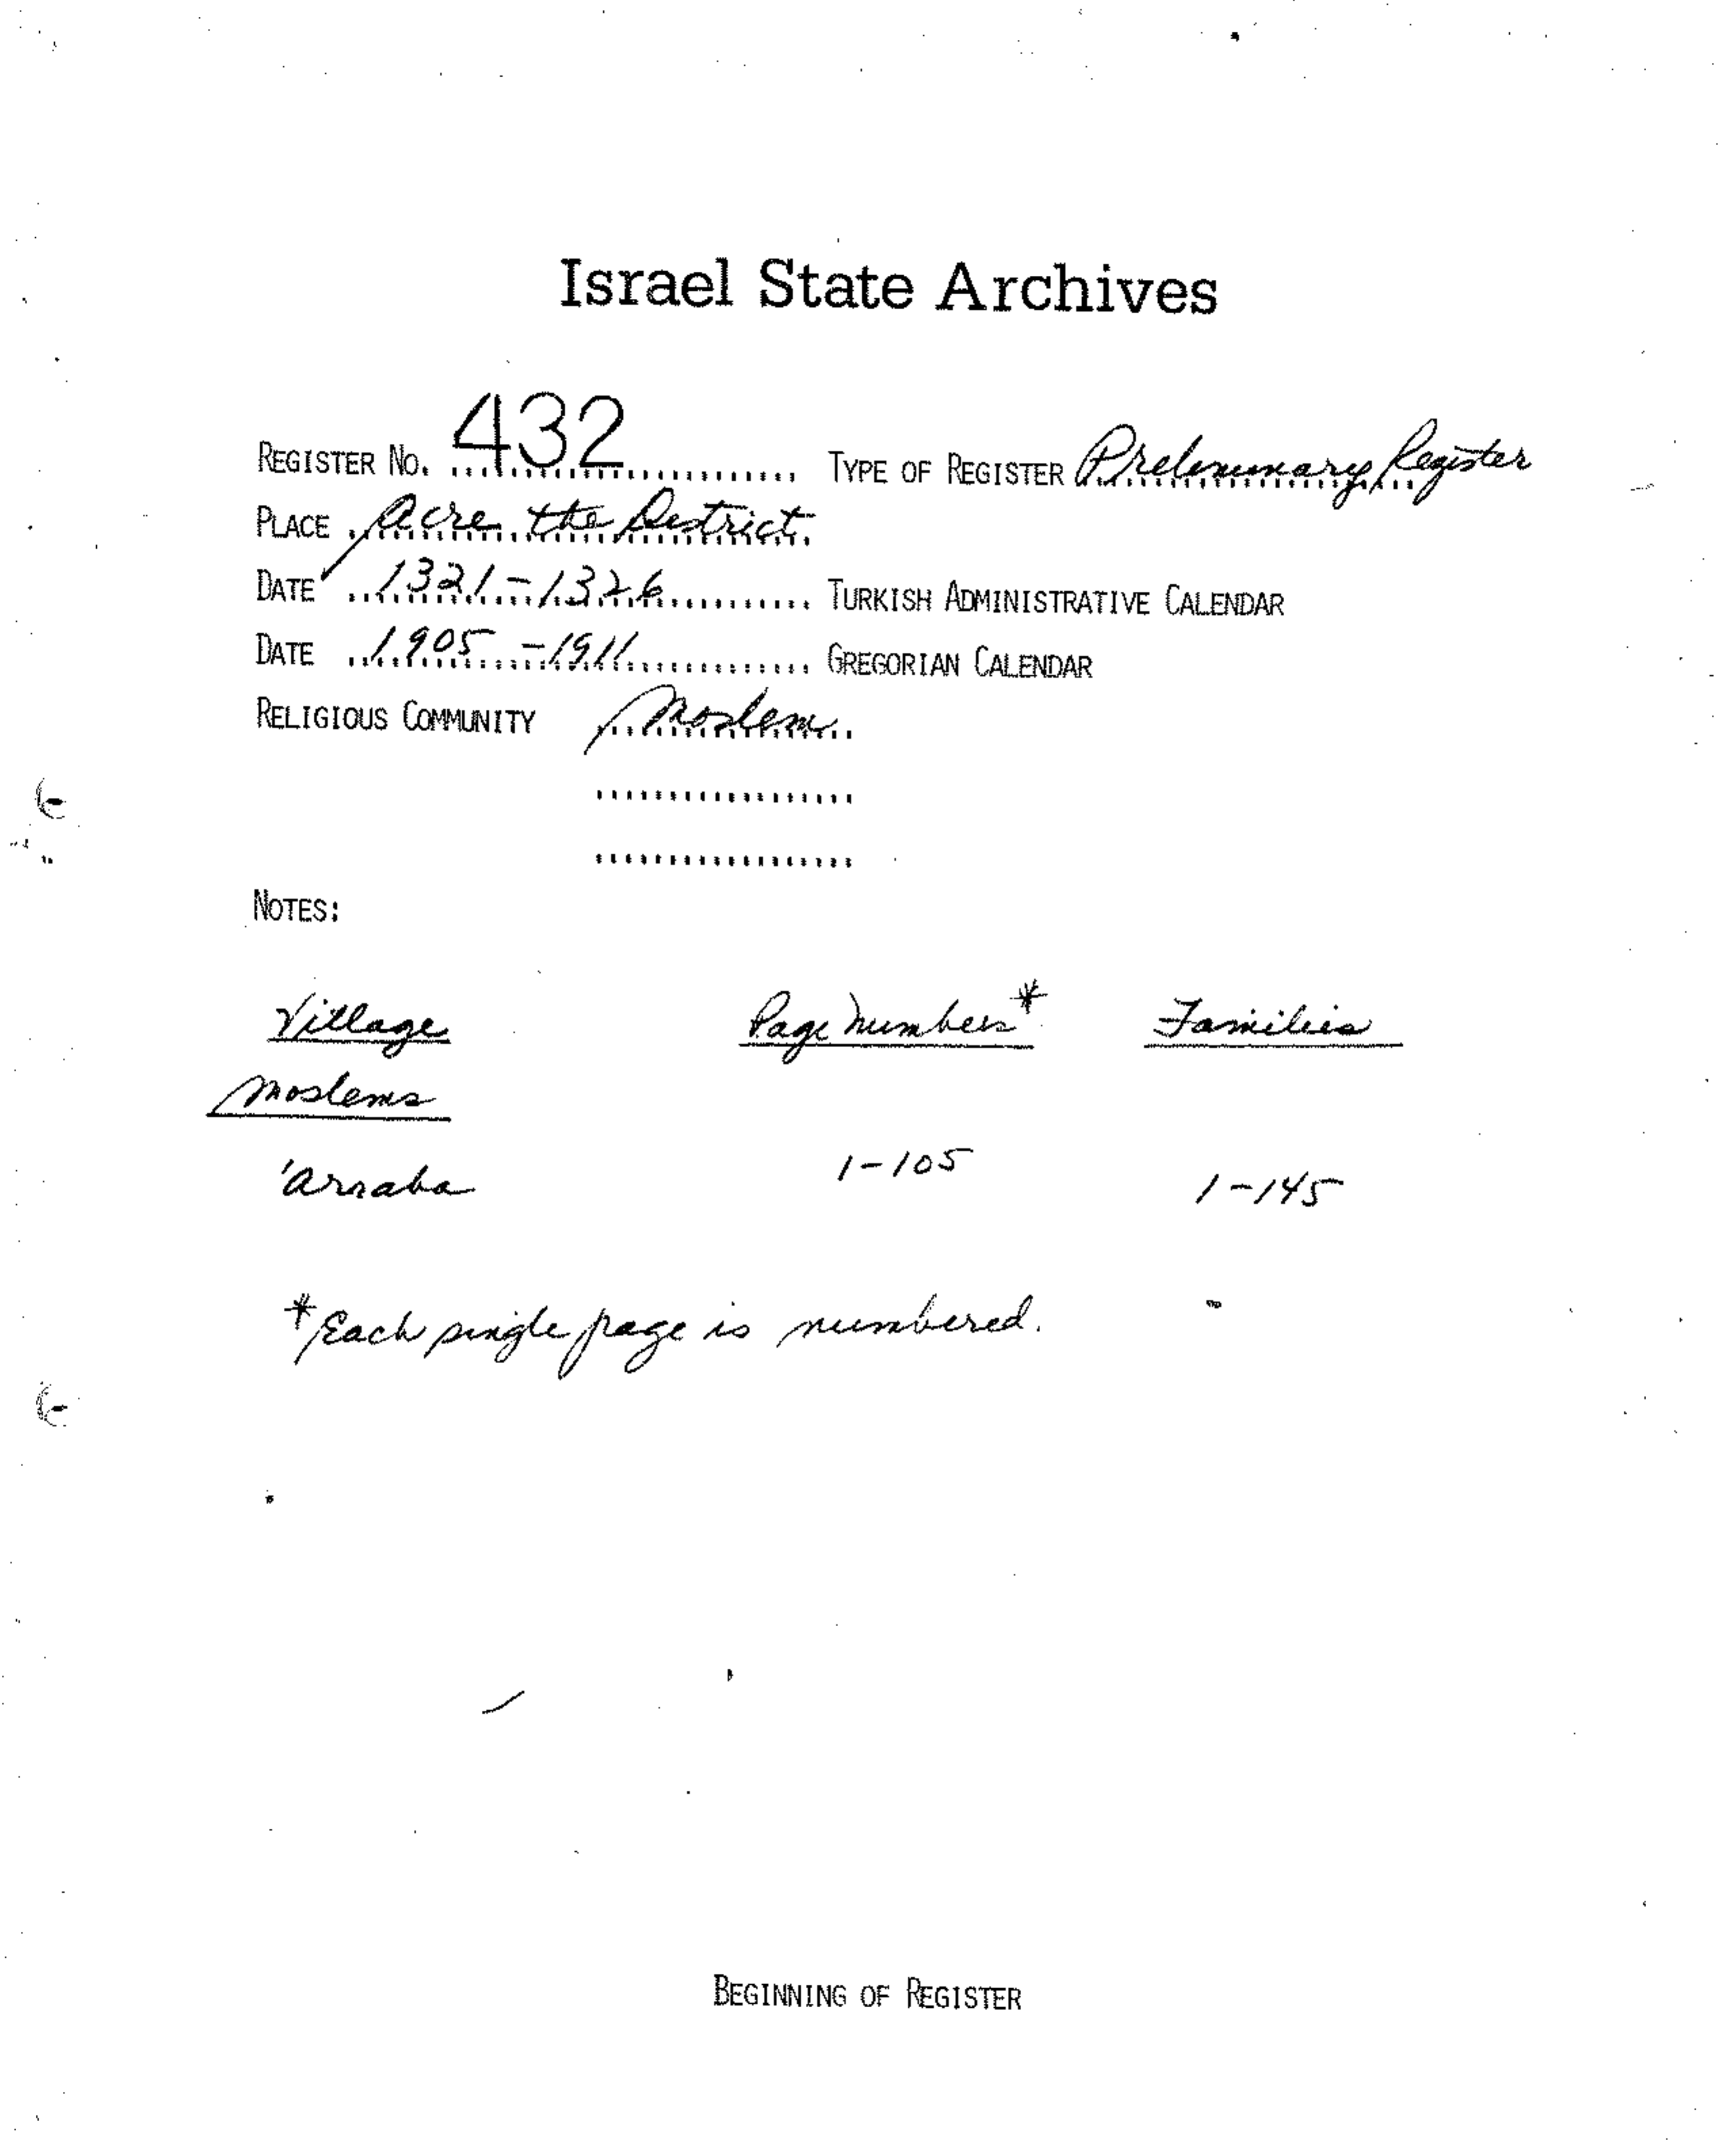 Israel State Archives
REGISTER NO. 432 TYPE OF REGISTER Preliminary Register
PLACE Acre, the District
DATE 1321-1326 TURKISH ADMINISTRATIVE CALENDAR
DATE 1905-1911 GREGORIAN CALENDAR
RELIGIOUS COMMUNITY Moslem
NOTES:
Village Page Numbers* Families
Moslems
'Arraba 1-105 1-145
*Each single page is numbered.
BEGINNING OF REGISTER